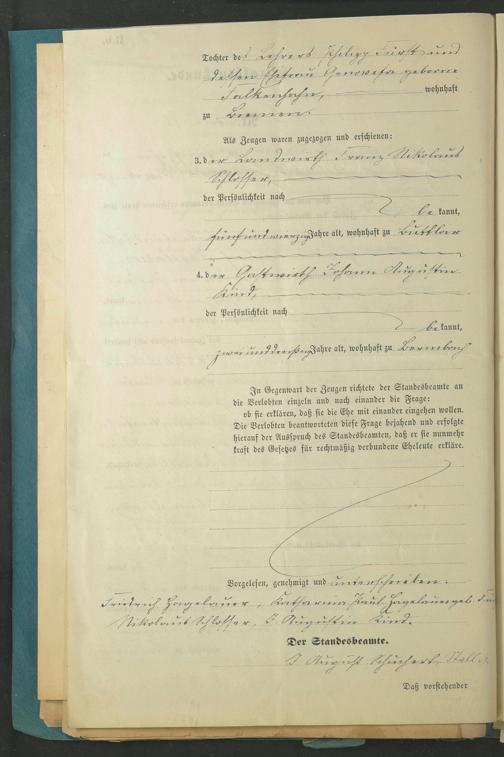 Tochter des Lehrers Philipp Fürst und
dessen Ehefrau Genovefa geborene
Falkenhahn, wohnhaft
zu Bremen.
Als Zeugen waren zugezogen und erschienen:
3. der Landwirth Franz Nikolaus
Schlosser,
der Persönlichkeit nach
bekannt,
fünfundvierzig Jahre alt, wohnhaft zu Buttlar
4. der Gastwirth Johann Augustin
Kind,
der Persönlichkeit nach
bekannt,
zweiunddreißig Jahre alt, wohnhaft zu Bermbach
In Gegenwart der Zeugen richtete der Standesbeamte an
die Verlobten einzeln und nach einander die Frage:
ob sie erklären, daß sie die Ehe mit einander eingehen wollen.
Die Verlobten beantworteten diese Frage bejahend und erfolgte
hierauf der Ausspruch des Standesbeamten, daß er sie nunmehr
kraft des Gesetzes für rechtmäßig verbundene Eheleute erkläre.
Vorgelesen, genehmigt und unterschrieben.
Fridrich Hagelauer, Katharina Hagelauer geb.
Nikolaus Schlosser, J. Augustin Kind.
Der Standesbeamte.
J August Schuchert,
Daß vorstehender